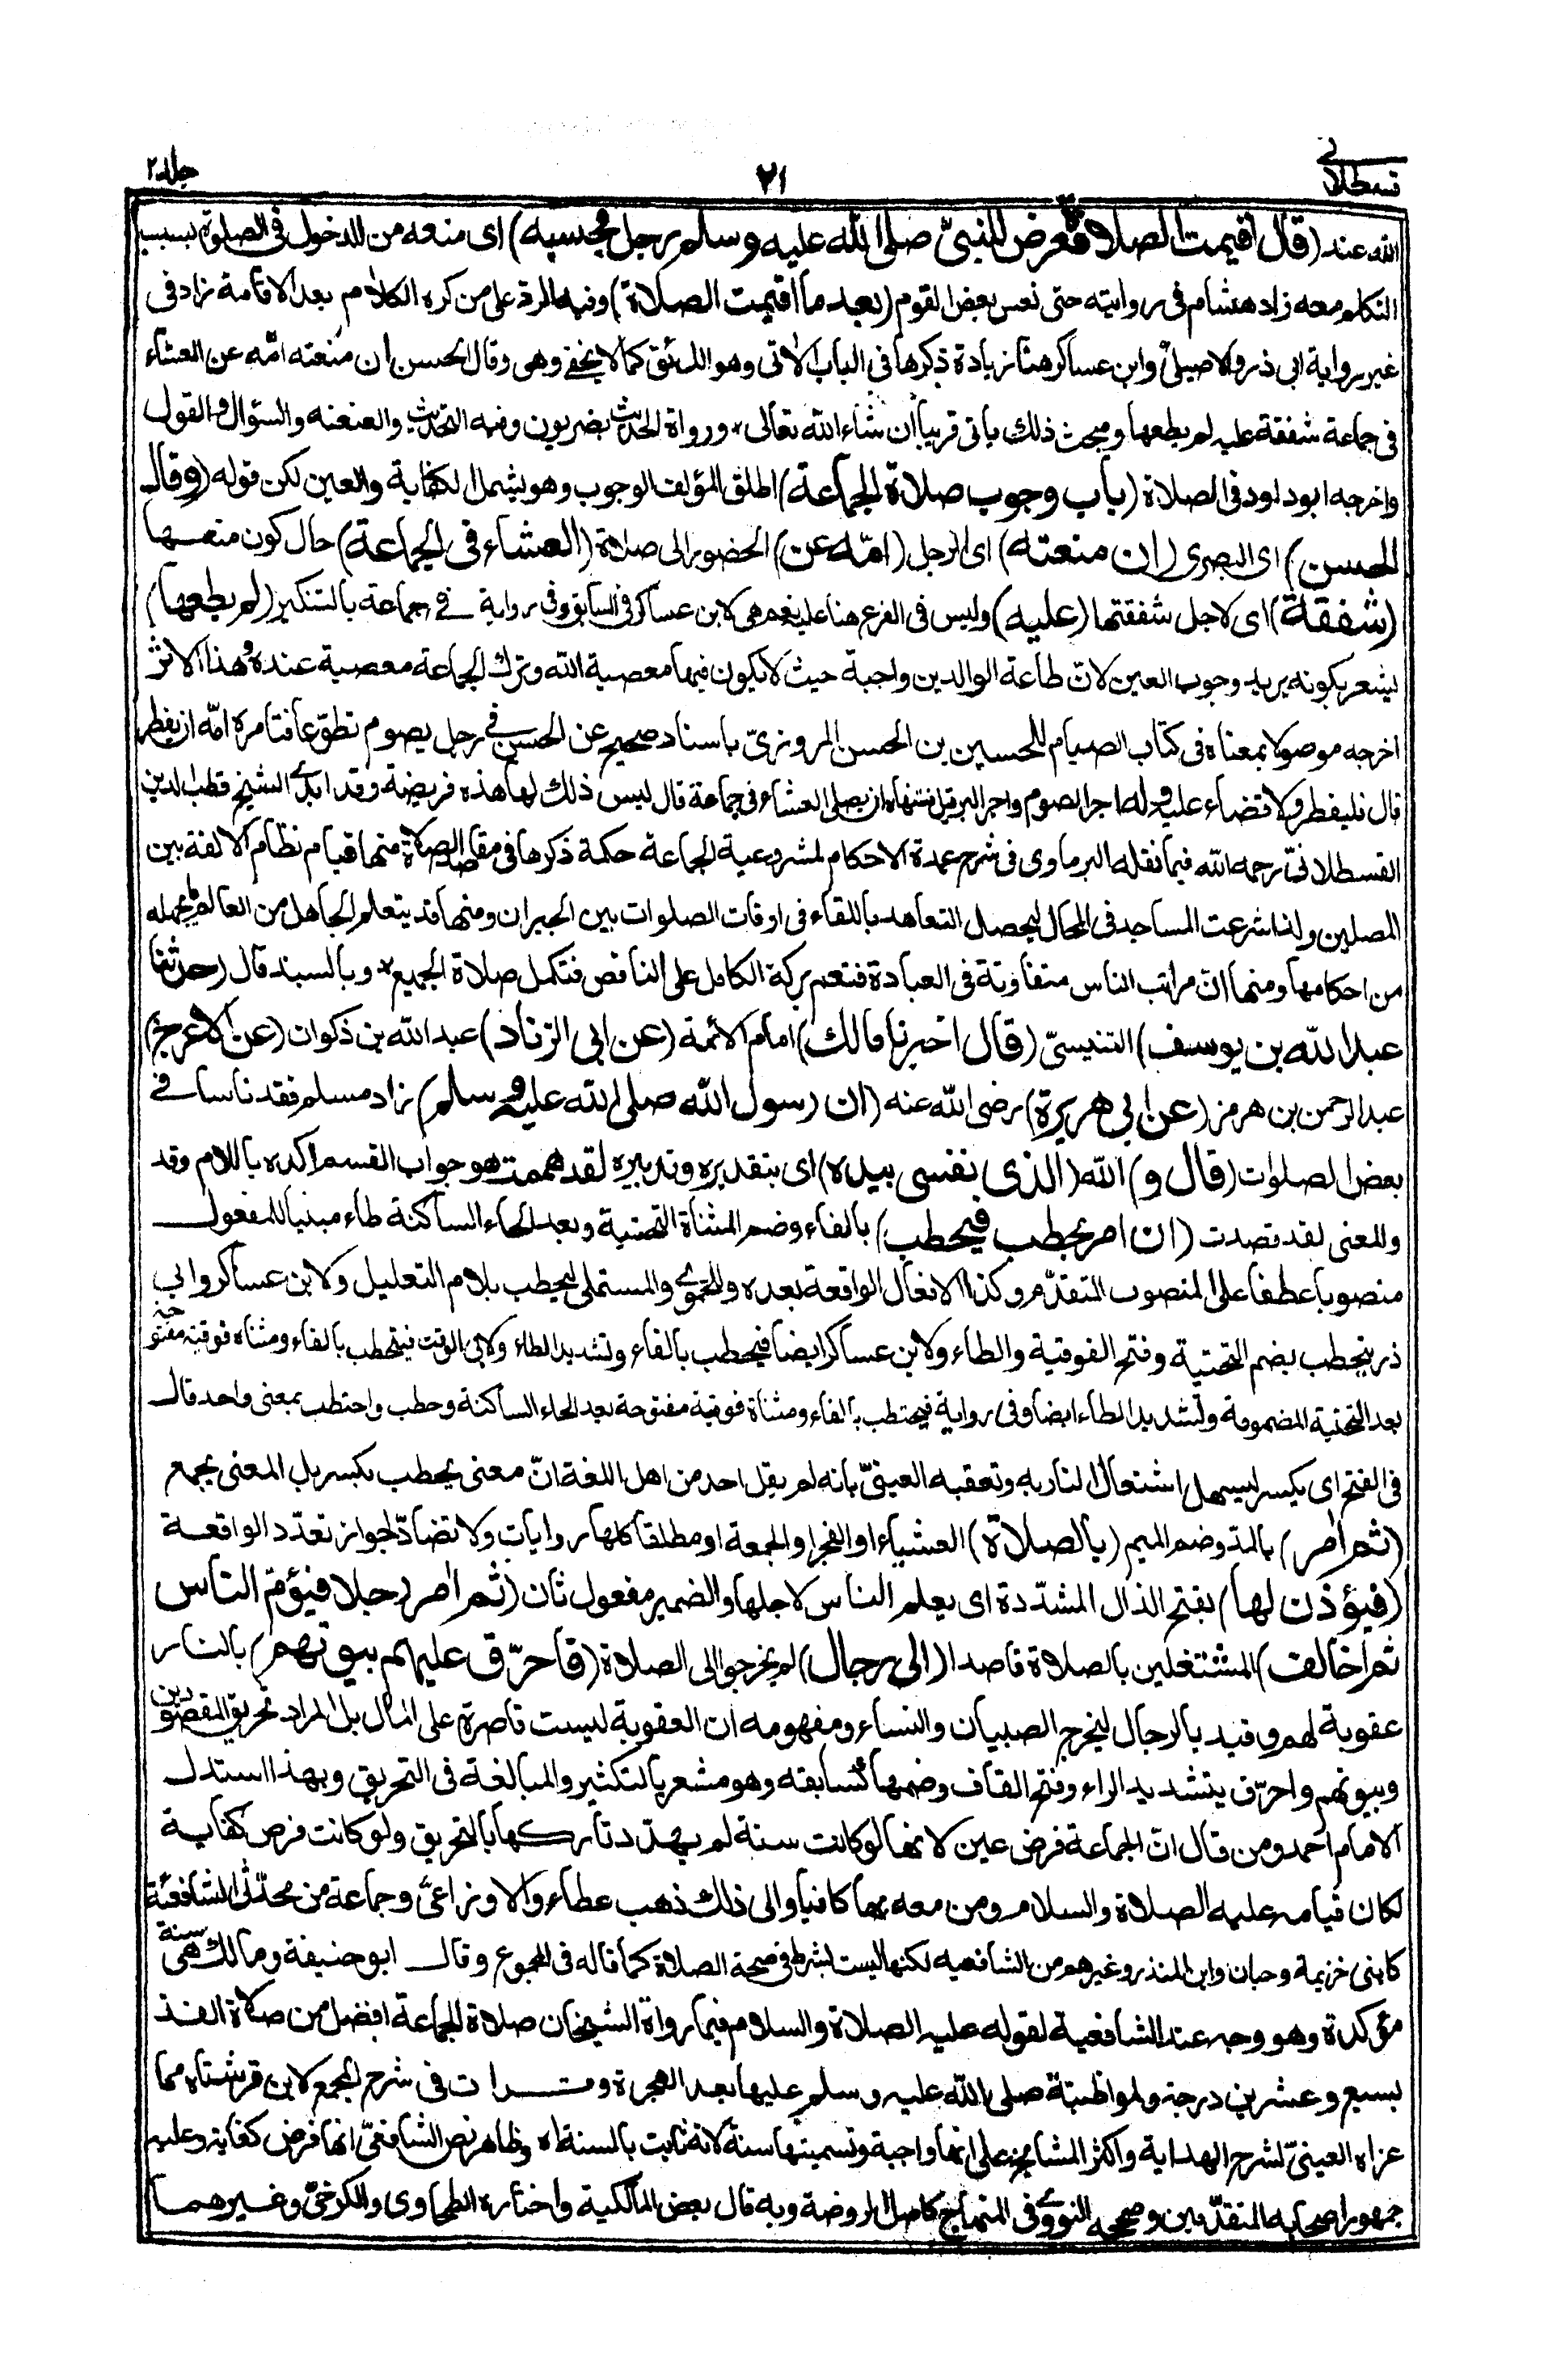 قسطلانی
٢١
جلد ٢
الله عنه (قال اقيمت الصلاة فعرض للنبيّ صلى الله عليه وسلم رجل فحبسه) اى منعه من الدخول فى الصلوة بسبب
التكلم معه زاد هشام فى روايته حتى نعس بعض القوم (بعد ما اقيمت الصلاة) وفيه الرد على من كره الكلام بعد الاقامة زاد فى
غير رواية ابى ذر والاصيلى وابن عساكر هنا زيادة ذكرها فى الباب الآتى وهو اللائق كما لا يخفى وهى وقال الحسن ان منعته امّه عن العشاء
فى جماعة شفقة عليه لم يطعها ومبحث ذلك ياتى قريبا ان شاء الله تعالى ورواة الحديث بصريون وفيه التحديث والعنعنه والسؤال والقول
واخرجه ابو داود فى الصلاة (باب وجوب صلاة الجماعة) اطلق المؤلف الوجوب وهو يشمل الكفاية والعين لكن قوله (وقال
الحسن) اى البصرى (ان منعته) اى الرجل (امّه عن) الحضور الى صلاة (العشاء فى الجماعة) حال كون منعها
(شفقة) اى لاجل شفقتها (عليه) وليس فى الفرع هنا عليه نعم هى لابن عساكر فى السابق وفى رواية فى جماعة بالتنكير (لم يطعها)
يشعر بكونه يريد وجوب العين لانّ طاعة الوالدين واجبة حيث لا يكون فيها معصية الله وترك الجماعة معصية عنده وهذا الاثر
اخرجه موصولا بمعناه فى كتاب الصيام للحسين بن الحسن المروزىّ باسناد صحيح عن الحسن فى رجل يصوم تطوّعا فتامره امّه ان يفطر
قال فليفطر ولا قضاء عليه وله اجر الصوم واجر البر قيل فتنهاه ان يصلى العشاء فى جماعة قال ليس ذلك لها هذه فريضة وقد ابدى الشيخ قطب الدين
القسطلانىّ رحمه الله فيما نقله البرماوى فى شرح عمدة الاحكام لمشروعية الجماعة حكمة ذكرها فى مقاصد الصلاة منها قيام نظام الالفة بين
المصلين ولذا شرعت المساجد فى المحال ليحصل التعاهد باللقاء فى اوقات الصلوات بين الجيران ومنها قد يتعلم الجاهل من العالم ما يجهله
من احكامها ومنها انّ مراتب الناس متفاوتة فى العبادة فتعم بركة الكامل على الناقص فتكمل صلاة الجميع وبالسند قال (حدثنا
عبد الله بن يوسف) التنيسىّ (قال اخبرنا مالك) امام الائمة (عن ابى الزناد) عبد الله بن ذكوان (عن الاعرج)
عبد الرحمن بن هرمز (عن ابى هريرة) رضى الله عنه (ان رسول الله صلى الله عليه وسلم) زاد مسلم فقد ناسا فى
بعض الصلوات (قال و) الله (الذى نفسى بيده) اى بتقديره وتدبيره لقد هممت هو جواب القسم اكده باللام وقد
والمعنى لقد قصدت (ان امر بحطب فيحطب) بالفاء وضم المثناة التحتية وبعد الحاء الساكنة طاء مبنيا للمفعول
منصوبا عطفا على المنصوب المتقدّم وكذا الافعال الواقعة بعده وللحموى والمستملى ليحطب بلام التعليل ولابن عساكر وابى
ذر يتحطب بضم التحتية وفتح الفوقية والطاء ولابن عساكر ايضا فيحطب بالفاء وتشديد الطاء ولابى الوقت فيتحطب بالفاء ومثناه فوقيه مفتوحة
بعد التحتية المضمومة وتشديد الطاء ايضا وفى رواية فيحتطب بالفاء ومثناة فوقية مفتوحة بعد الحاء الساكنة وحطب واحتطب بمعنى واحد قال
فى الفتح اى يكسر ليسهل اشتعال النار به وتعقبه العينىّ بانه لم يقل احد من اهل اللغة انّ معنى يحطب يكسر بل المعنى يجمع
(ثم آمر) بالمدّ وضم الميم (بالصلاة) العشاء او الفجر او الجمعة او مطلقا كلها روايات ولا تضادّ لجواز تعدّد الواقعة
(فيؤذن لها) بفتح الذال المشدّدة اى يعلم الناس لاجلها والضمير مفعول ثان (ثم آمر رجلا فيؤمّ الناس
ثم اخالف) المشتغلين بالصلاة قاصدا (الى رجال) لم يخرجوا الى الصلاة (فاحرّق عليهم بيوتهم) بالنار
عقوبة لهم وقيد بالرجال ليخرج الصبيان والنساء ومفهومه ان العقوبة ليست قاصرة على المال بل المراد تحريق المقصودين
وبيوتهم واحرّق بتشديد الراء وفتح القاف وضمها كسابقه وهو مشعر بالتكثير والمبالغة فى التحريق وبهذا استدل
الامام احمد ومن قال انّ الجماعة فرض عين لانها لو كانت سنة لم يهدّد تاركها بالتحريق ولو كانت فرض كفاية
لكان قيامه عليه الصلاة والسلام ومن معه بها كافيا والى ذلك ذهب عطاء والاوزاعىّ وجماعة من محدّثى الشافعية
كابنى خزيمة وحبان وابن المنذر وغيرهم من الشافعيه لكنها ليست بشرط فى صحة الصلاة كما قاله فى المجموع وقال ابو حنيفة ومالك هى سنة
مؤكدة وهو وجه عند الشافعية لقوله عليه الصلاة والسلام فيما رواه الشيخان صلاة الجماعة افضل من صلاة الفذ
بسبع وعشرين درجة ولمواظبته صلى الله عليه وسلم عليها بعد الهجرة وقرات فى شرح المجمع لابن فرشتاه مما
عزاه العينىّ لشرح الهداية واكثر المشايخ على انها واجبة وتسميتها سنة لانه ثابت بالسنة اه وظاهر نص الشافعىّ انها فرض كفاية وعليه
جمهور اصحابه المتقدّمين وصححه النووى فى المنهاج كاصل الروضة وبه قال بعض المالكية واختاره الطحاوى والكرخىّ وغيرهما